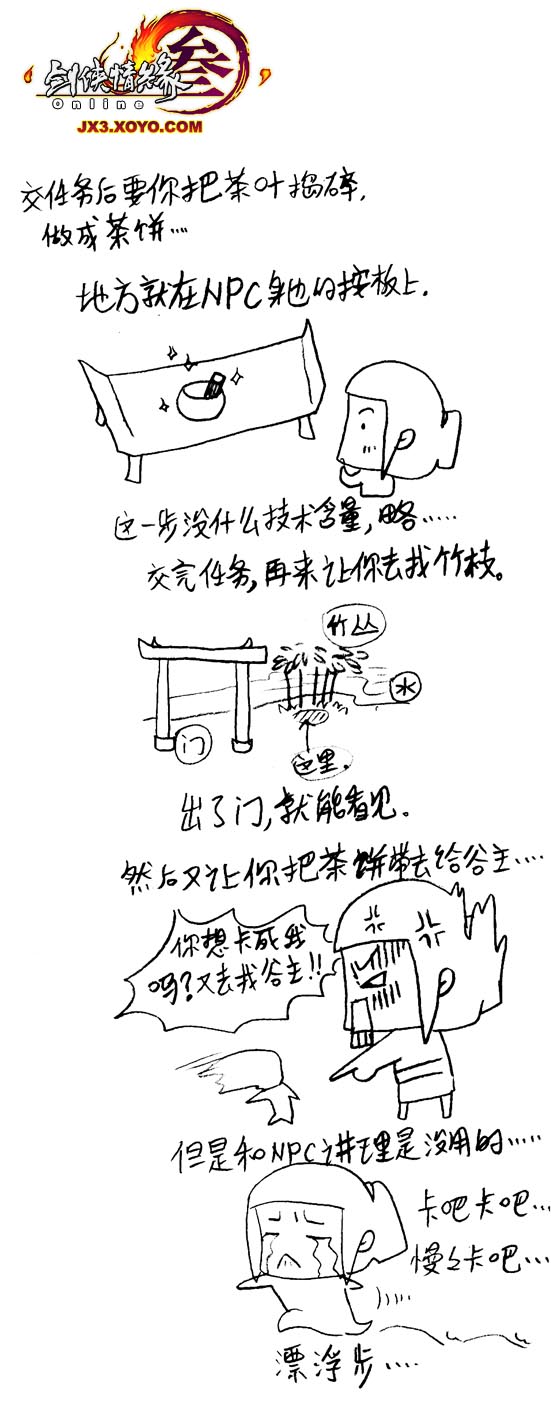 剑侠情缘叁
Online
JX3.XOYO.COM
交任务后要你把茶叶捣碎,
做成茶饼....
地方就在NPC身边的按板上.
这一步没什么技术含量,略.....
交完任务,再来让你去找竹枝。
竹丛
水
门
这里.
出了门,就能看见.
然后又让你把茶饼带去给谷主....
你想卡死我
吗?又去找谷主!!
但是和NPC讲理是没用的.....
卡吧卡吧...
慢々卡吧...
漂浮步....